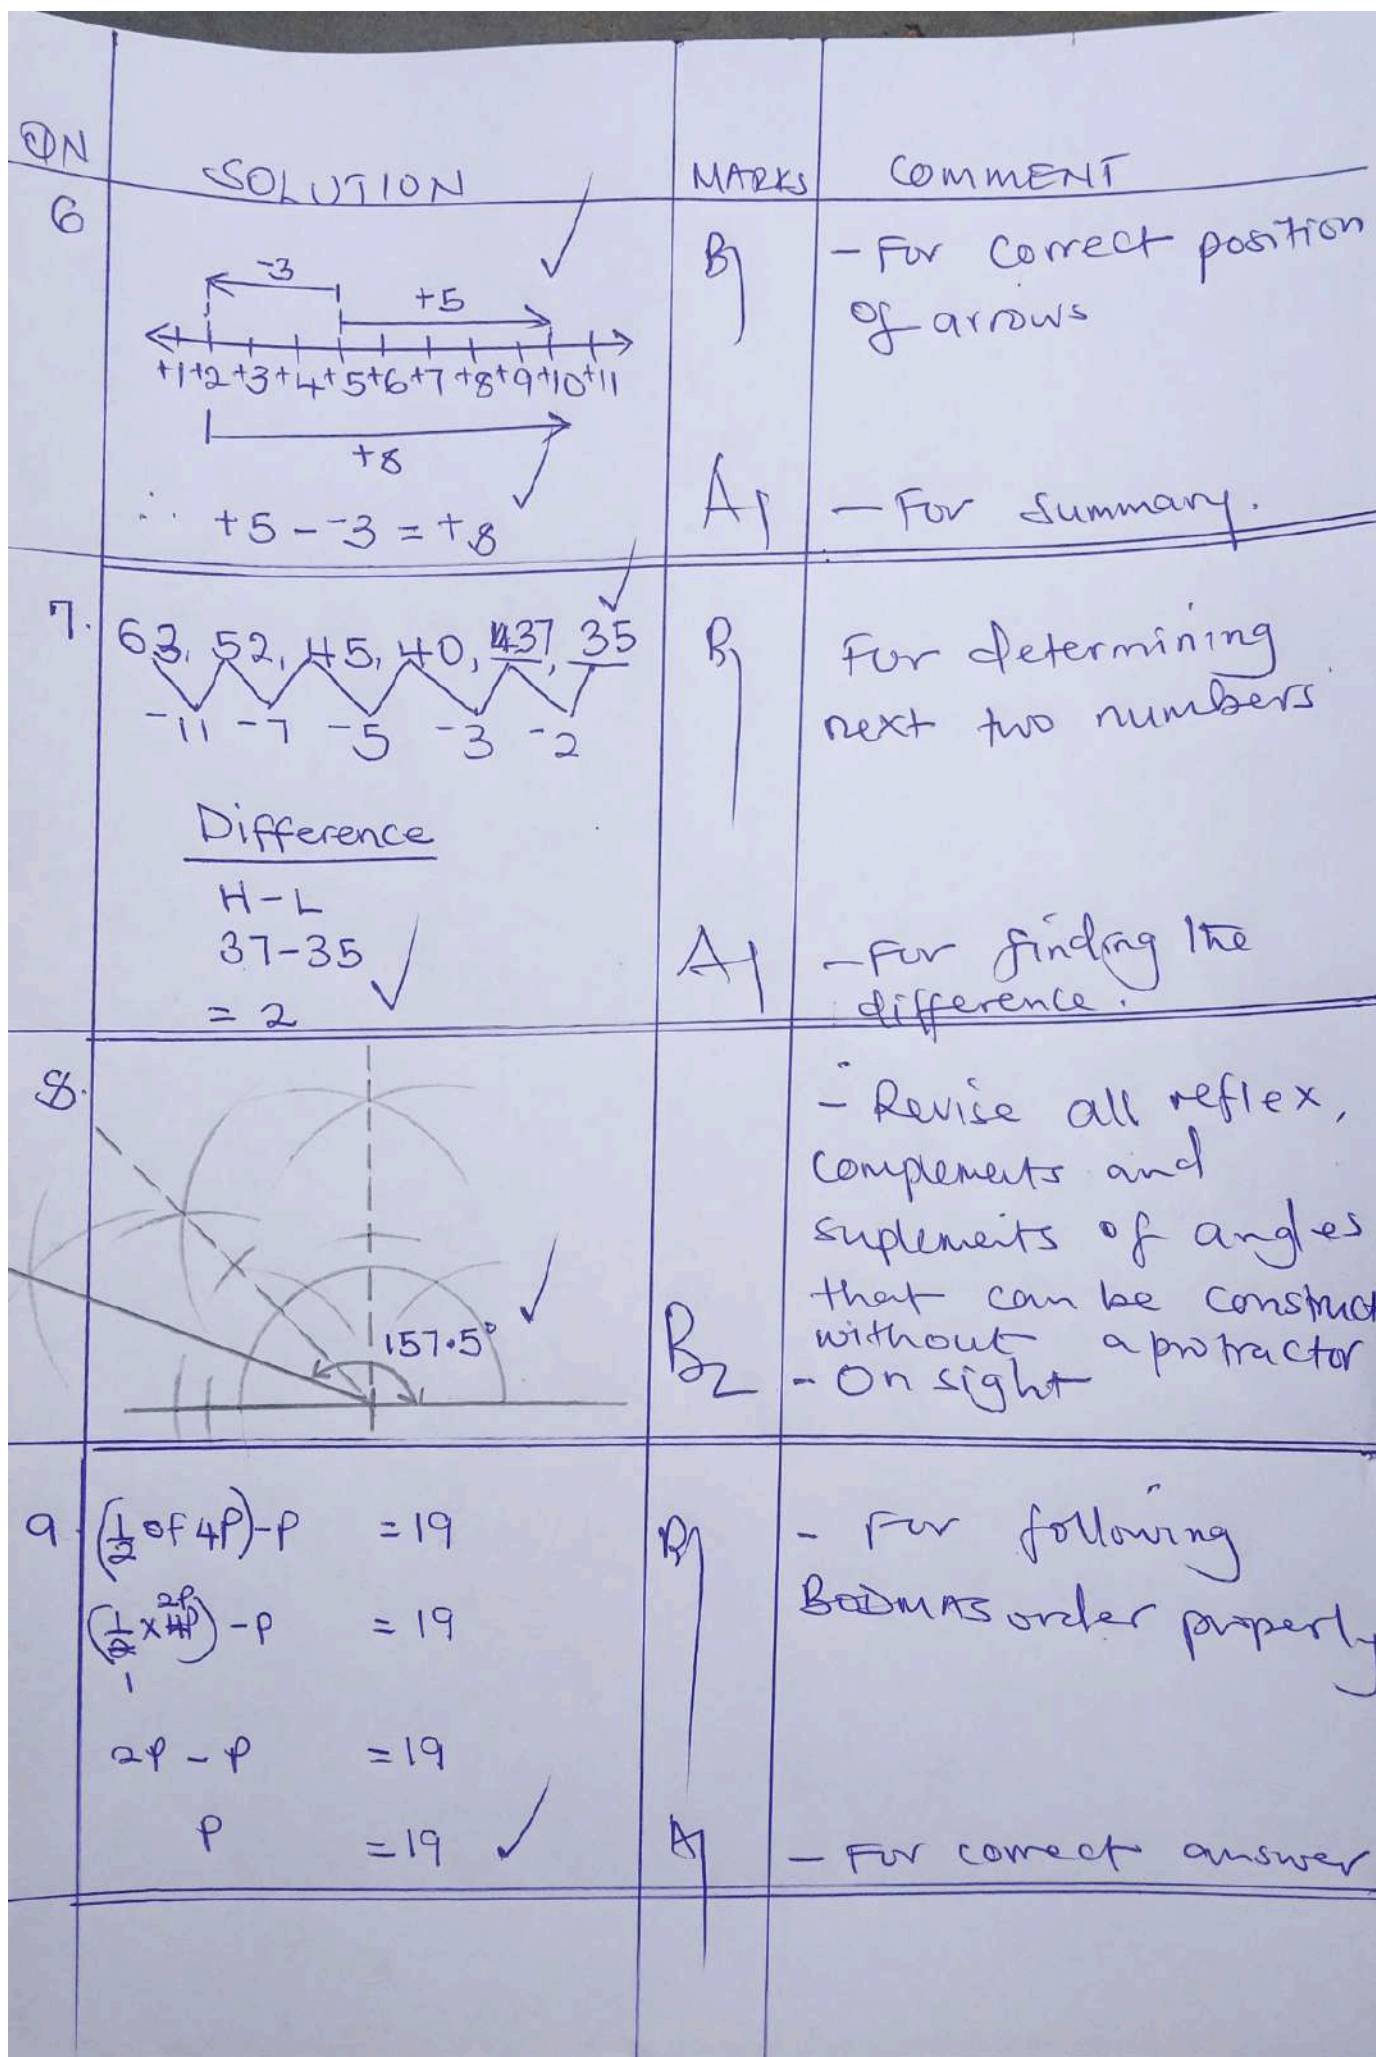 QN SOLUTION MARKS COMMENT
6
-3
+5
+1 +2 +3 +4 +5 +6 +7 +8 +9 +10 +11
+8
∴ +5 - -3 = +8
B1
- For correct position
of arrows
A1
- For summary.
7. 63, 52, 45, 40, 37, 35
-11 -7 -5 -3 -2
Difference
H-L
37-35
= 2
B1
For determining
next two numbers
A1
- For finding the
difference.
8.
157.5°
B2
- Revise all reflex,
complements and
suplements of angles
that can be construct
without a protractor
- On sight
9. (1/2 of 4P)-P = 19
(1/2 x 4P) - P = 19
2P
1
2P - P = 19
P = 19
B1
- For following
BODMAS order properly
A1
- For correct answer